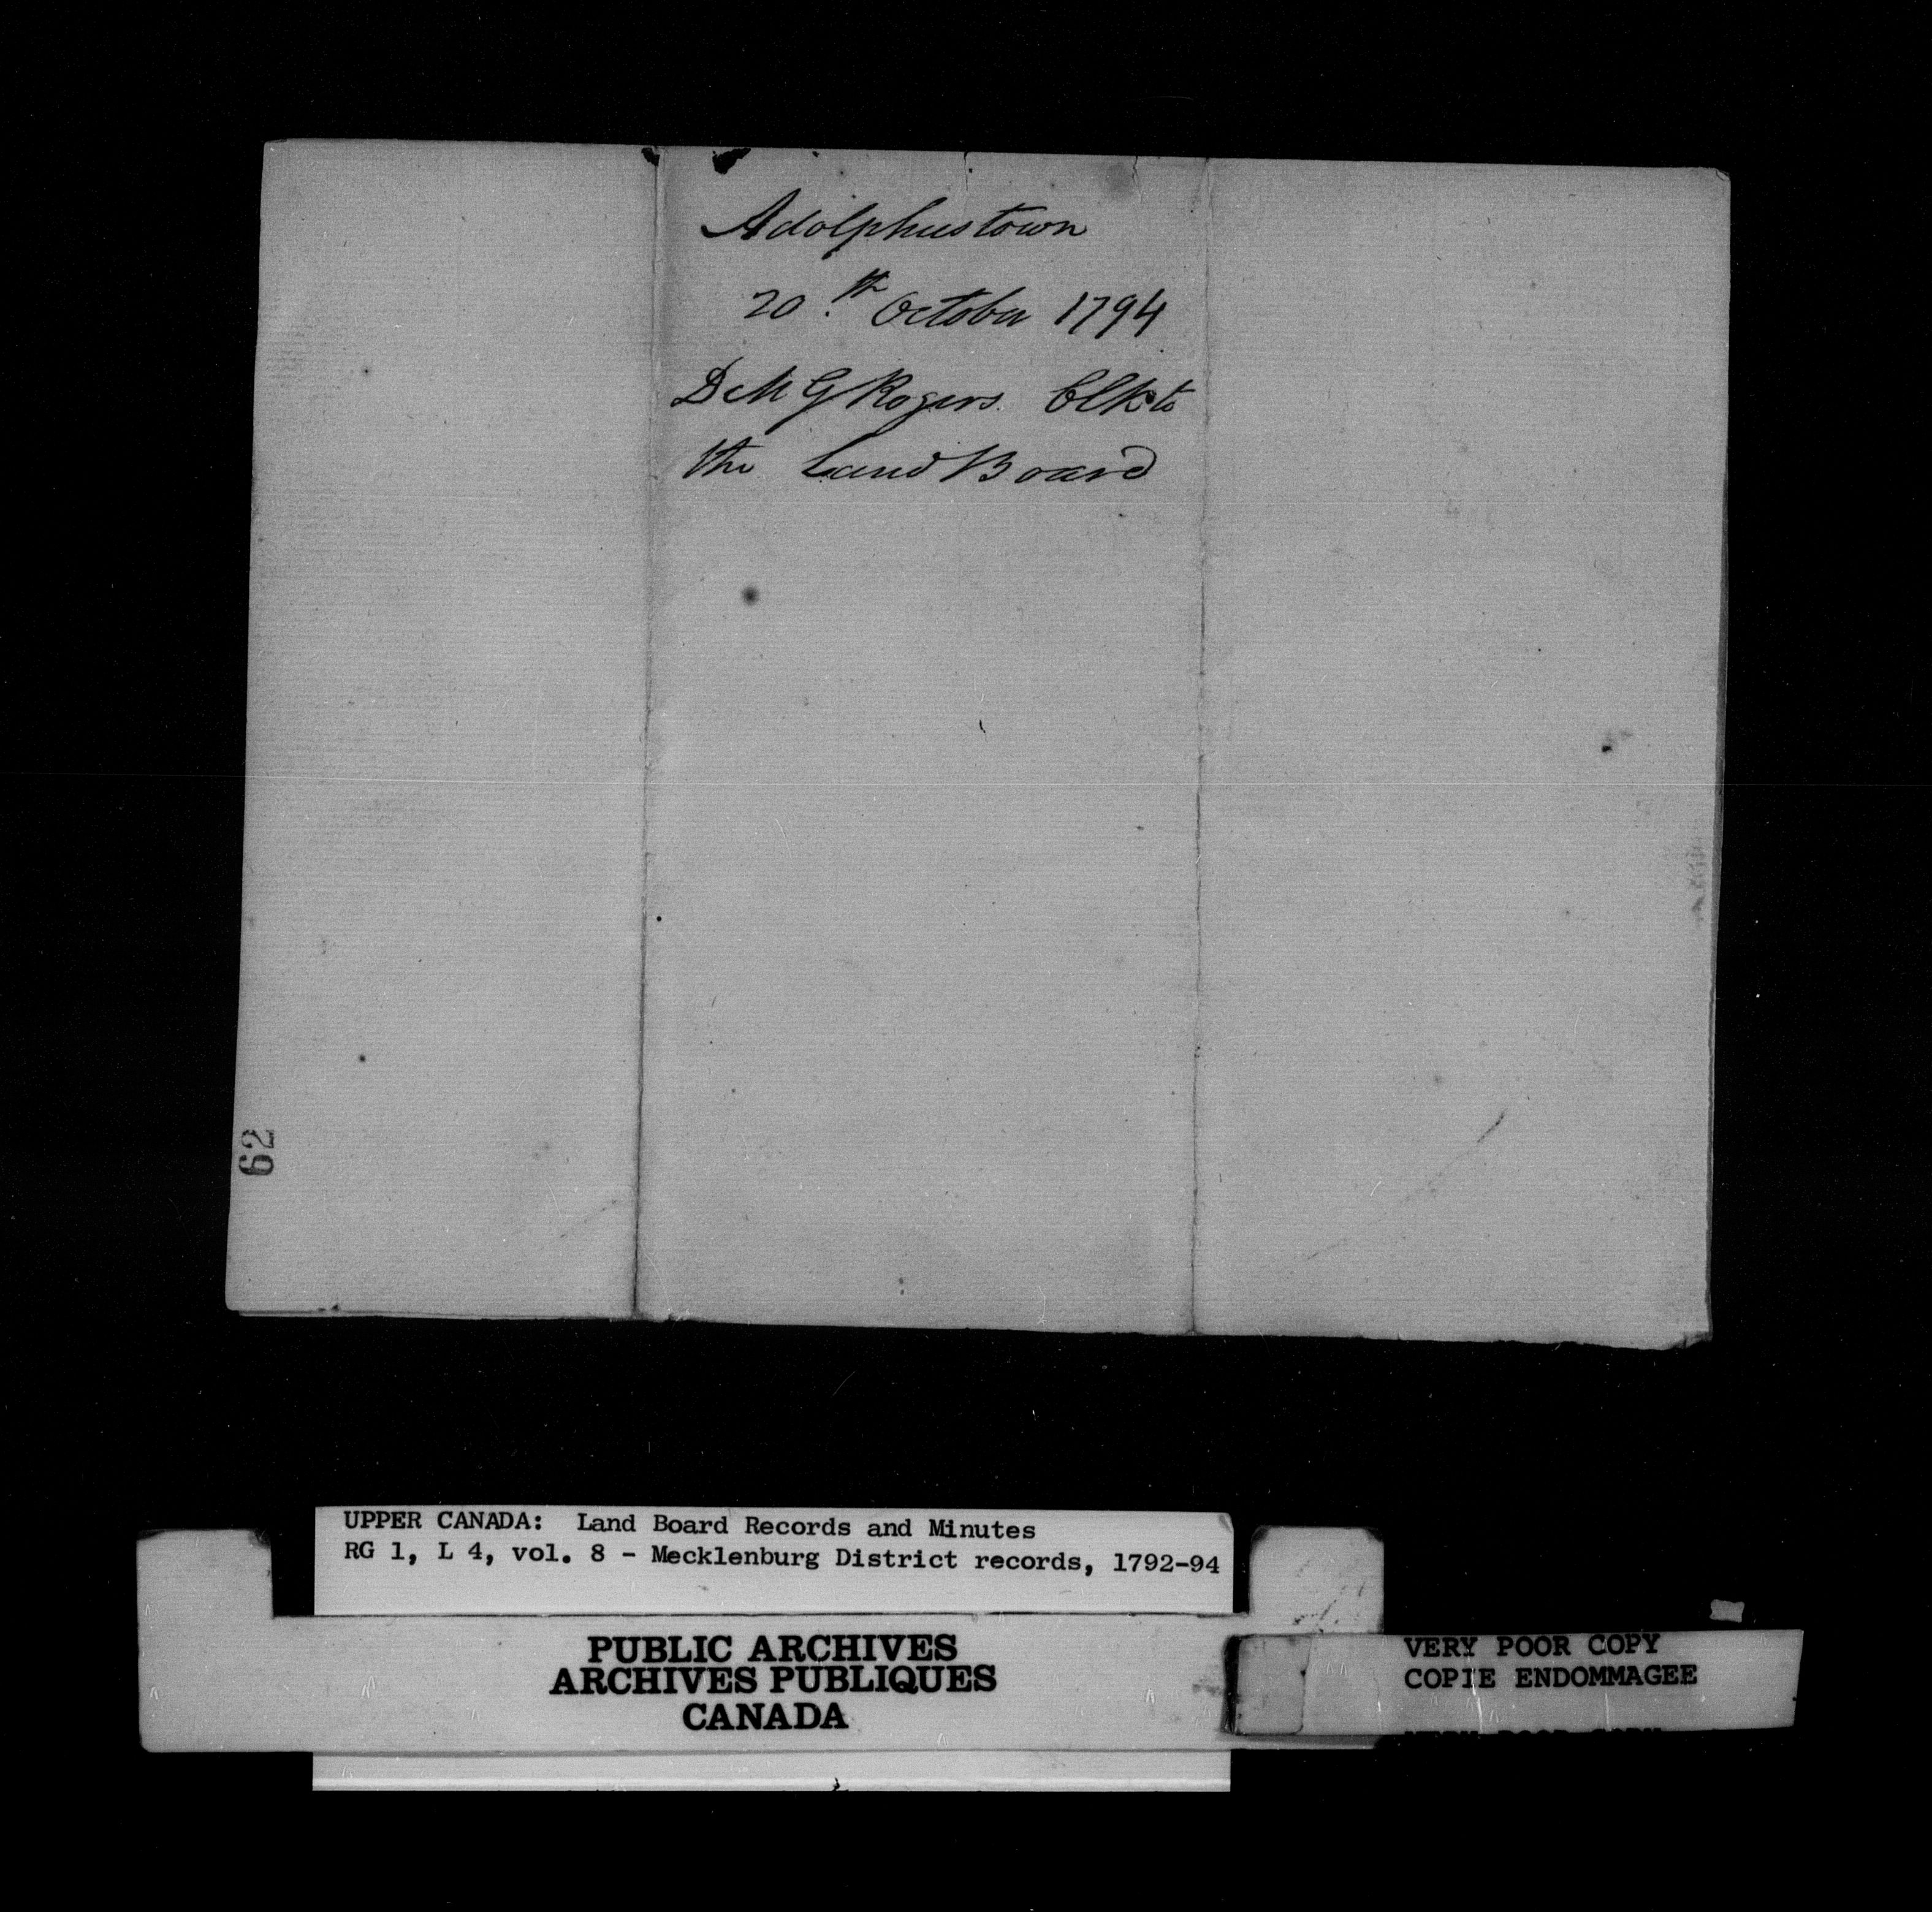 Adolphustown
20th October 1794
D McG Rogers Clk to
the Land Board
62
UPPER CANADA: Land Board Records and Minutes
RG 1, L 4, vol. 8 - Mecklenburg District records, 1792-94
PUBLIC ARCHIVES
ARCHIVES PUBLIQUES
CANADA
VERY POOR COPY
COPIE ENDOMMAGEE